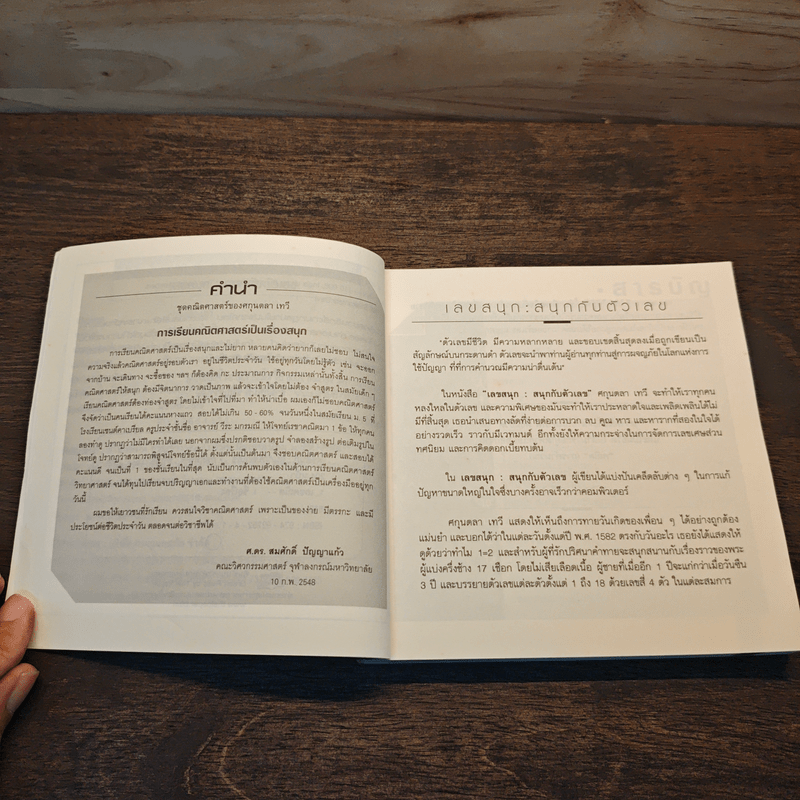 คำนำ
ชุดคณิตศาสตร์ของศกุนตลา เทวี
การเรียนคณิตศาสตร์เป็นเรื่องสนุก
การเรียนคณิตศาสตร์เป็นเรื่องสนุกและไม่ยาก หลายคนคิดว่ายากก็เลยไม่ชอบ ไม่สนใจ
ความจริงแล้วคณิตศาสตร์อยู่รอบตัวเรา อยู่ในชีวิตประจำวัน ใช้อยู่ทุกวันโดยไม่รู้ตัว เช่น จะออก
จากบ้าน จะเดินทาง จะซื้อของ ฯลฯ ก็ต้องคิด กะ ประมาณการ กิจกรรมเหล่านั้นทั้งสิ้น การเรียน
คณิตศาสตร์ให้สนุก ต้องมีจิตนาการ วาดเป็นภาพ แล้วจะเข้าใจโดยไม่ต้อง จำสูตร ในสมัยเด็ก ๆ
เรียนคณิตศาสตร์ต้องท่องจำสูตร โดยไม่เข้าใจที่ไปที่มา ทำให้น่าเบื่อ ผมเองก็ไม่ชอบคณิตศาสตร์
จึงจัดว่าเป็นคนเรียนได้คะแนนหางแถว สอบได้ไม่เกิน 50 - 60% จนวันหนึ่งในสมัยเรียน ม. 5 ที่
โรงเรียนเซนต์คาเบรียล ครูประจำชั้นชื่อ อาจารย์ วีระ มกรมณี ให้โจทย์เรขาคณิตมา 1 ข้อ ให้ทุกคน
ลองทำดู ปรากฏว่าไม่มีใครทำได้เลย นอกจากผมซึ่งปกติชอบวาดรูป จำลองสร้างรูป ต่อเติมรูปใน
โจทย์ดู ปรากฏว่าสามารถพิสูจน์โจทย์ข้อนี้ได้ ตั้งแต่นั้นเป็นต้นมา จึงชอบคณิตศาสตร์ และสอบได้
คะแนนดี จนเป็นที่ 1 ของชั้นเรียนในที่สุด นับเป็นการค้นพบตัวเองในด้านการเรียนคณิตศาสตร์
วิทยาศาสตร์ จนได้ทุนไปเรียนจบปริญญาเอกและทำงานที่ต้องใช้คณิตศาสตร์เป็นเครื่องมืออยู่ทุก
วันนี้
ผมขอให้เยาวชนที่รักเรียน ควรสนใจวิชาคณิตศาสตร์ เพราะเป็นของง่าย มีตรรกะ และมี
ประโยชน์ต่อชีวิตประจำวัน ตลอดจนต่อวิชาชีพได้
ศ.ดร. สมศักดิ์ ปัญญาแก้ว
คณะวิศวกรรมศาสตร์ จุฬาลงกรณ์มหาวิทยาลัย
10 ก.พ. 2548
สารบัญ
เลขสนุก : สนุกกับตัวเลข
"ตัวเลขมีชีวิต มีความหลากหลาย และขอบเขตสิ้นสุดลงเมื่อถูกเขียนเป็น
สัญลักษณ์บนกระดานดำ ตัวเลขจะนำพาท่านผู้อ่านทุกท่านสู่การผจญภัยในโลกแห่งการ
ใช้ปัญญา ที่ที่การคำนวณมีความน่าตื่นเต้น"
ในหนังสือ "เลขสนุก : สนุกกับตัวเลข" ศกุนตลา เทวี จะทำให้เราทุกคน
หลงใหลในตัวเลข และความพิเศษของมันจะทำให้เราประหลาดใจและเพลิดเพลินได้ไม่
มีที่สิ้นสุด เธอนำเสนอทางลัดที่ง่ายต่อการบวก ลบ คูณ หาร และหารากที่สองในใจได้
อย่างรวดเร็ว ราวกับมีเวทมนต์ อีกทั้งยังให้ความกระจ่างในการจัดการเลขเศษส่วน
ทศนิยม และการคิดดอกเบี้ยทบต้น
ใน เลขสนุก : สนุกกับตัวเลข ผู้เขียนได้แบ่งปันเคล็ดลับต่าง ๆ ในการแก้
ปัญหาขนาดใหญ่ในใจซึ่งบางครั้งอาจเร็วกว่าคอมพิวเตอร์
ศกุนตลา เทวี แสดงให้เห็นถึงการทายวันเกิดของเพื่อน ๆ ได้อย่างถูกต้อง
แม่นยำ และบอกได้ว่าในแต่ละวันตั้งแต่ปี พ.ศ. 1582 ตรงกับวันอะไร เธอยังได้แสดงให้
ดูด้วยว่าทำไม 1=2 และสำหรับผู้ที่รักปริศนาคำทายจะสนุกสนานกับเรื่องราวของพระ
ผู้แบ่งครึ่งช้าง 17 เชือก โดยไม่เสียเลือดเนื้อ ผู้ชายที่เมื่ออีก 1 ปีจะแก่กว่าเมื่อวันซืน
3 ปี และบรรยายตัวเลขแต่ละตัวตั้งแต่ 1 ถึง 18 ด้วยเลขสี่ 4 ตัว ในแต่ละสมการ